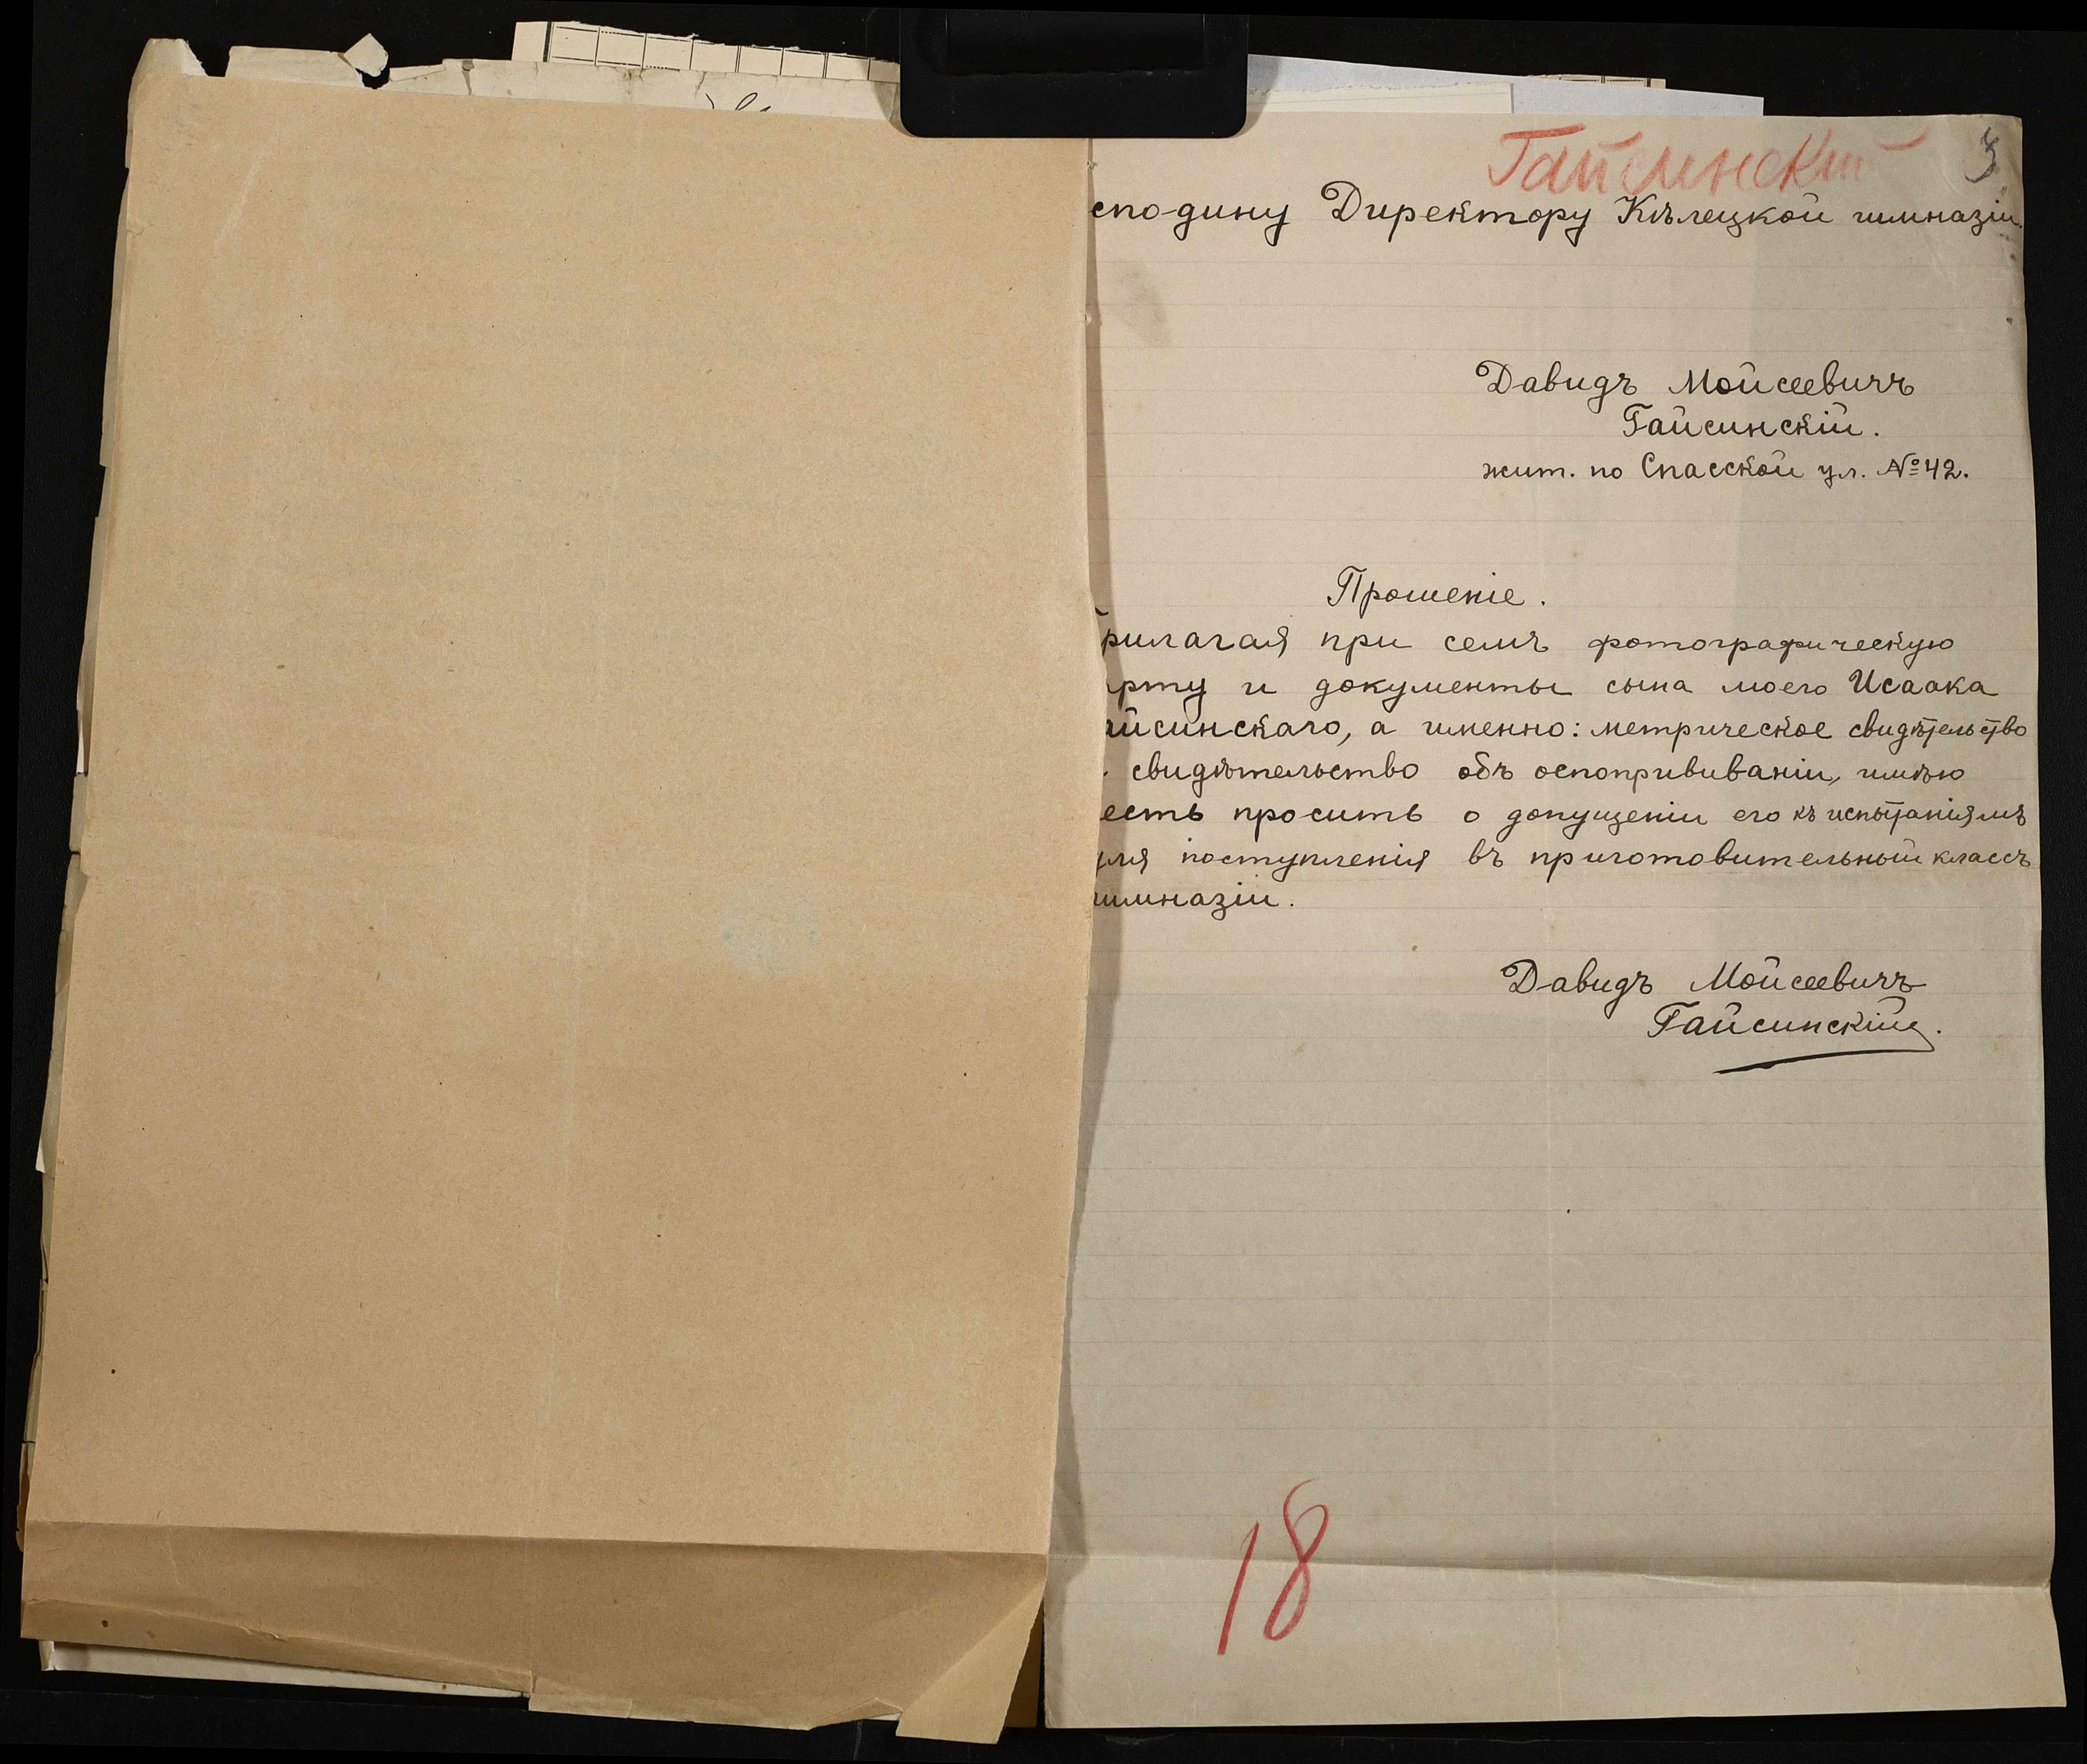 Гайсинскій
3
сподину Директору Кѣлецкой гимназіи.
Давидъ Мойсеевичъ
Гайсинскій.
жит. по Спасской ул. №42.
Прошеніе.
рилагая при семъ фотографическую
рту и документы сына моего Исаака
йсинскаго, а именно: метрическое свидѣтельство
свидѣтельство объ оспопрививаніи, имѣю
есть просить о допущеніи его къ испытаніямъ
для поступленія въ приготовительный классъ
гимназіи.
Давидъ Мойсеевичъ
Гайсинскій.
18